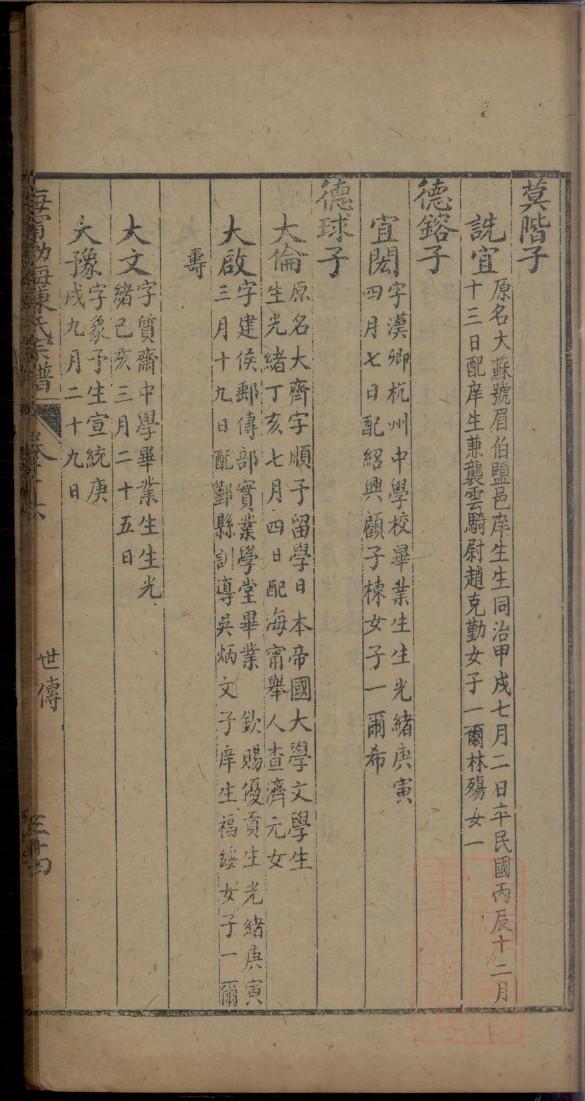 蓂階子
詵宜
原名大蘇號眉伯鹽邑庠生生同治甲戌七月二日卒民國丙辰十二月
十三日配庠生兼襲雲騎尉趙克勤女子一爾林殤女一
德鎔子
宜閎
字漢卿杭州中學校畢業生生光緒庚寅
四月七日配紹興顧子棟女子一爾希
德球子
大倫
原名大齊字順子留學日本帝國大學文學生
生光緒丁亥七月四日配海甯舉人查濟元女
大啟
字建侯郵傳部實業學堂畢業 欽賜優貢生光緒庚寅
三月十九日配鄞縣訓導吳炳文子庠生福綏女子一爾
壽
大文
字質齋中學畢業生生光
緒己亥三月二十五日
大豫
字象予生宣統庚
戌九月二十九日
海甯渤海陳氏宗譜
世傳